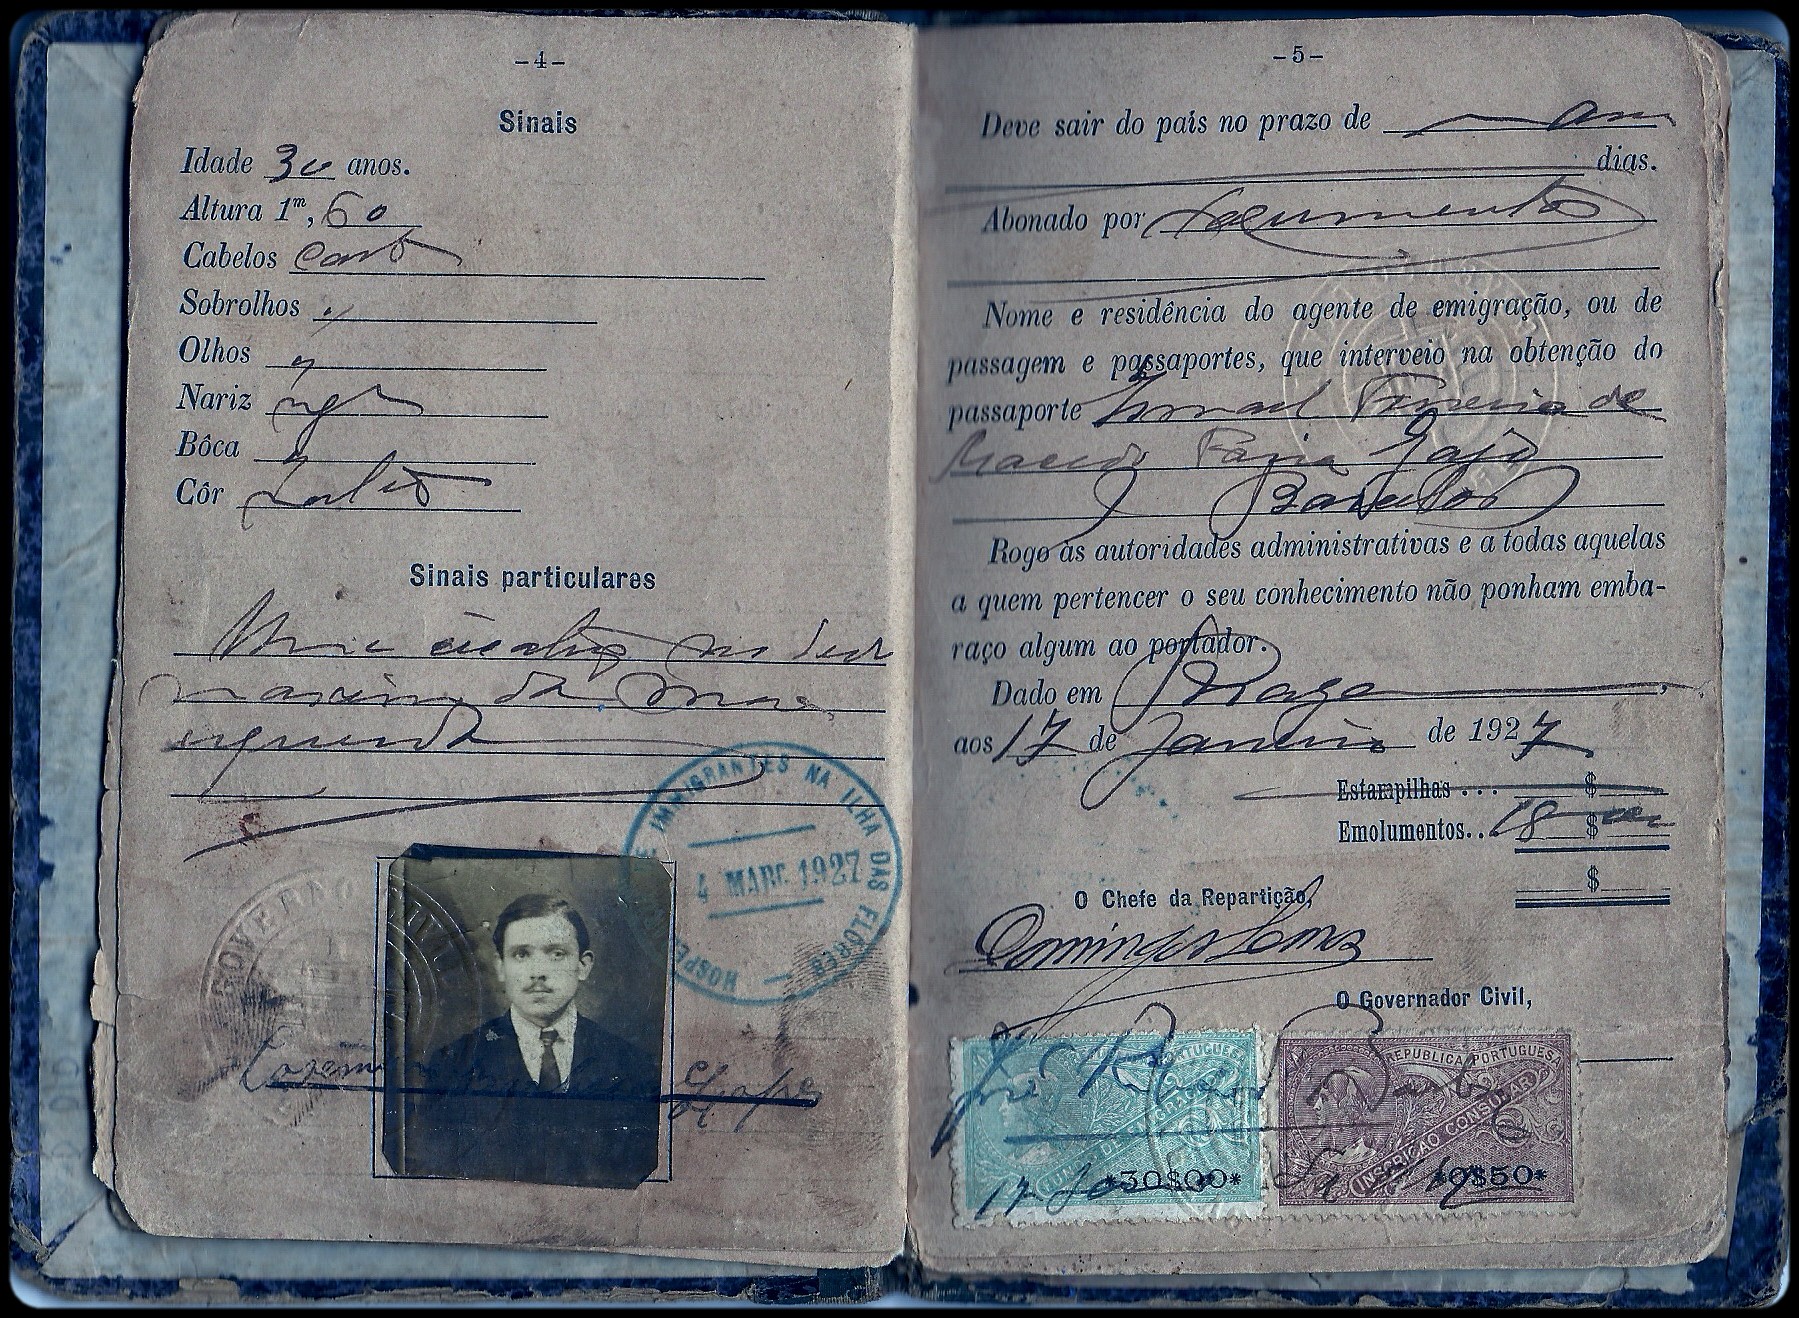 -4-
Sinais
Idade 30 anos.
Altura 1m, 60
Cabelos cast
Sobrolhos "
Olhos "
Nariz
Bôca
Côr
Sinais particulares
Uma cicatriz no
da mão
esquerda
HOSPED E IMMIGRANTES NA ILHA DAS FLORES
4 MARÇ 1927
GOVERNO CIVIL
-5-
Deve sair do país no prazo de
dias.
Abonado por documentos
Nome e residência do agente de emigração, ou de
passagem e passaportes, que interveio na obtenção do
passaporte Ismael Ferreira de
Macedo Faria Gajo
Barcelos
Rogo às autoridades administrativas e a todas aquelas
a quem pertencer o seu conhecimento não ponham emba-
raço algum ao portador.
Dado em Braga
aos 17 de Janeiro de 1927
Estampilhas ... $
Emolumentos.. 18 $
$
O Chefe da Repartição,
Domingos
O Governador Civil,
PORTUGUESA
REPUBLICA PORTUGUESA
INSCRIÇÃO CONSULAR
*30$00*
*0$50*
17